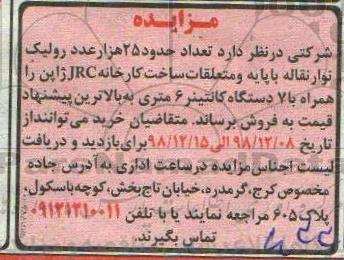 مزایده
شرکتی درنظر دارد تعداد حدود۲۵هزارعدد رولیک
نوار نقاله با پایه ومتعلقات ساخت کارخانه JRC ژاپن را
همراه با۷ دستگاه کانتینر ۶ متری به بالاترین پیشنهاد
قیمت به فروش برساند. متقاضیان خرید می توانند از
تاریخ ۹۸/۱۲/۰۸ الی ۹۸/۱۲/۱۵ برای بازدید و دریافت
لیست اجناس مزایده درساعت اداری به آدرس جاده
مخصوص کرج، گرمدره، خیابان تاج بخش، کوچه باسکول،
پلاک ۶۰۵ مراجعه نمایند یا با تلفن ۰۹۱۲۱۲۱۰۰۱۱
تماس بگیرند.